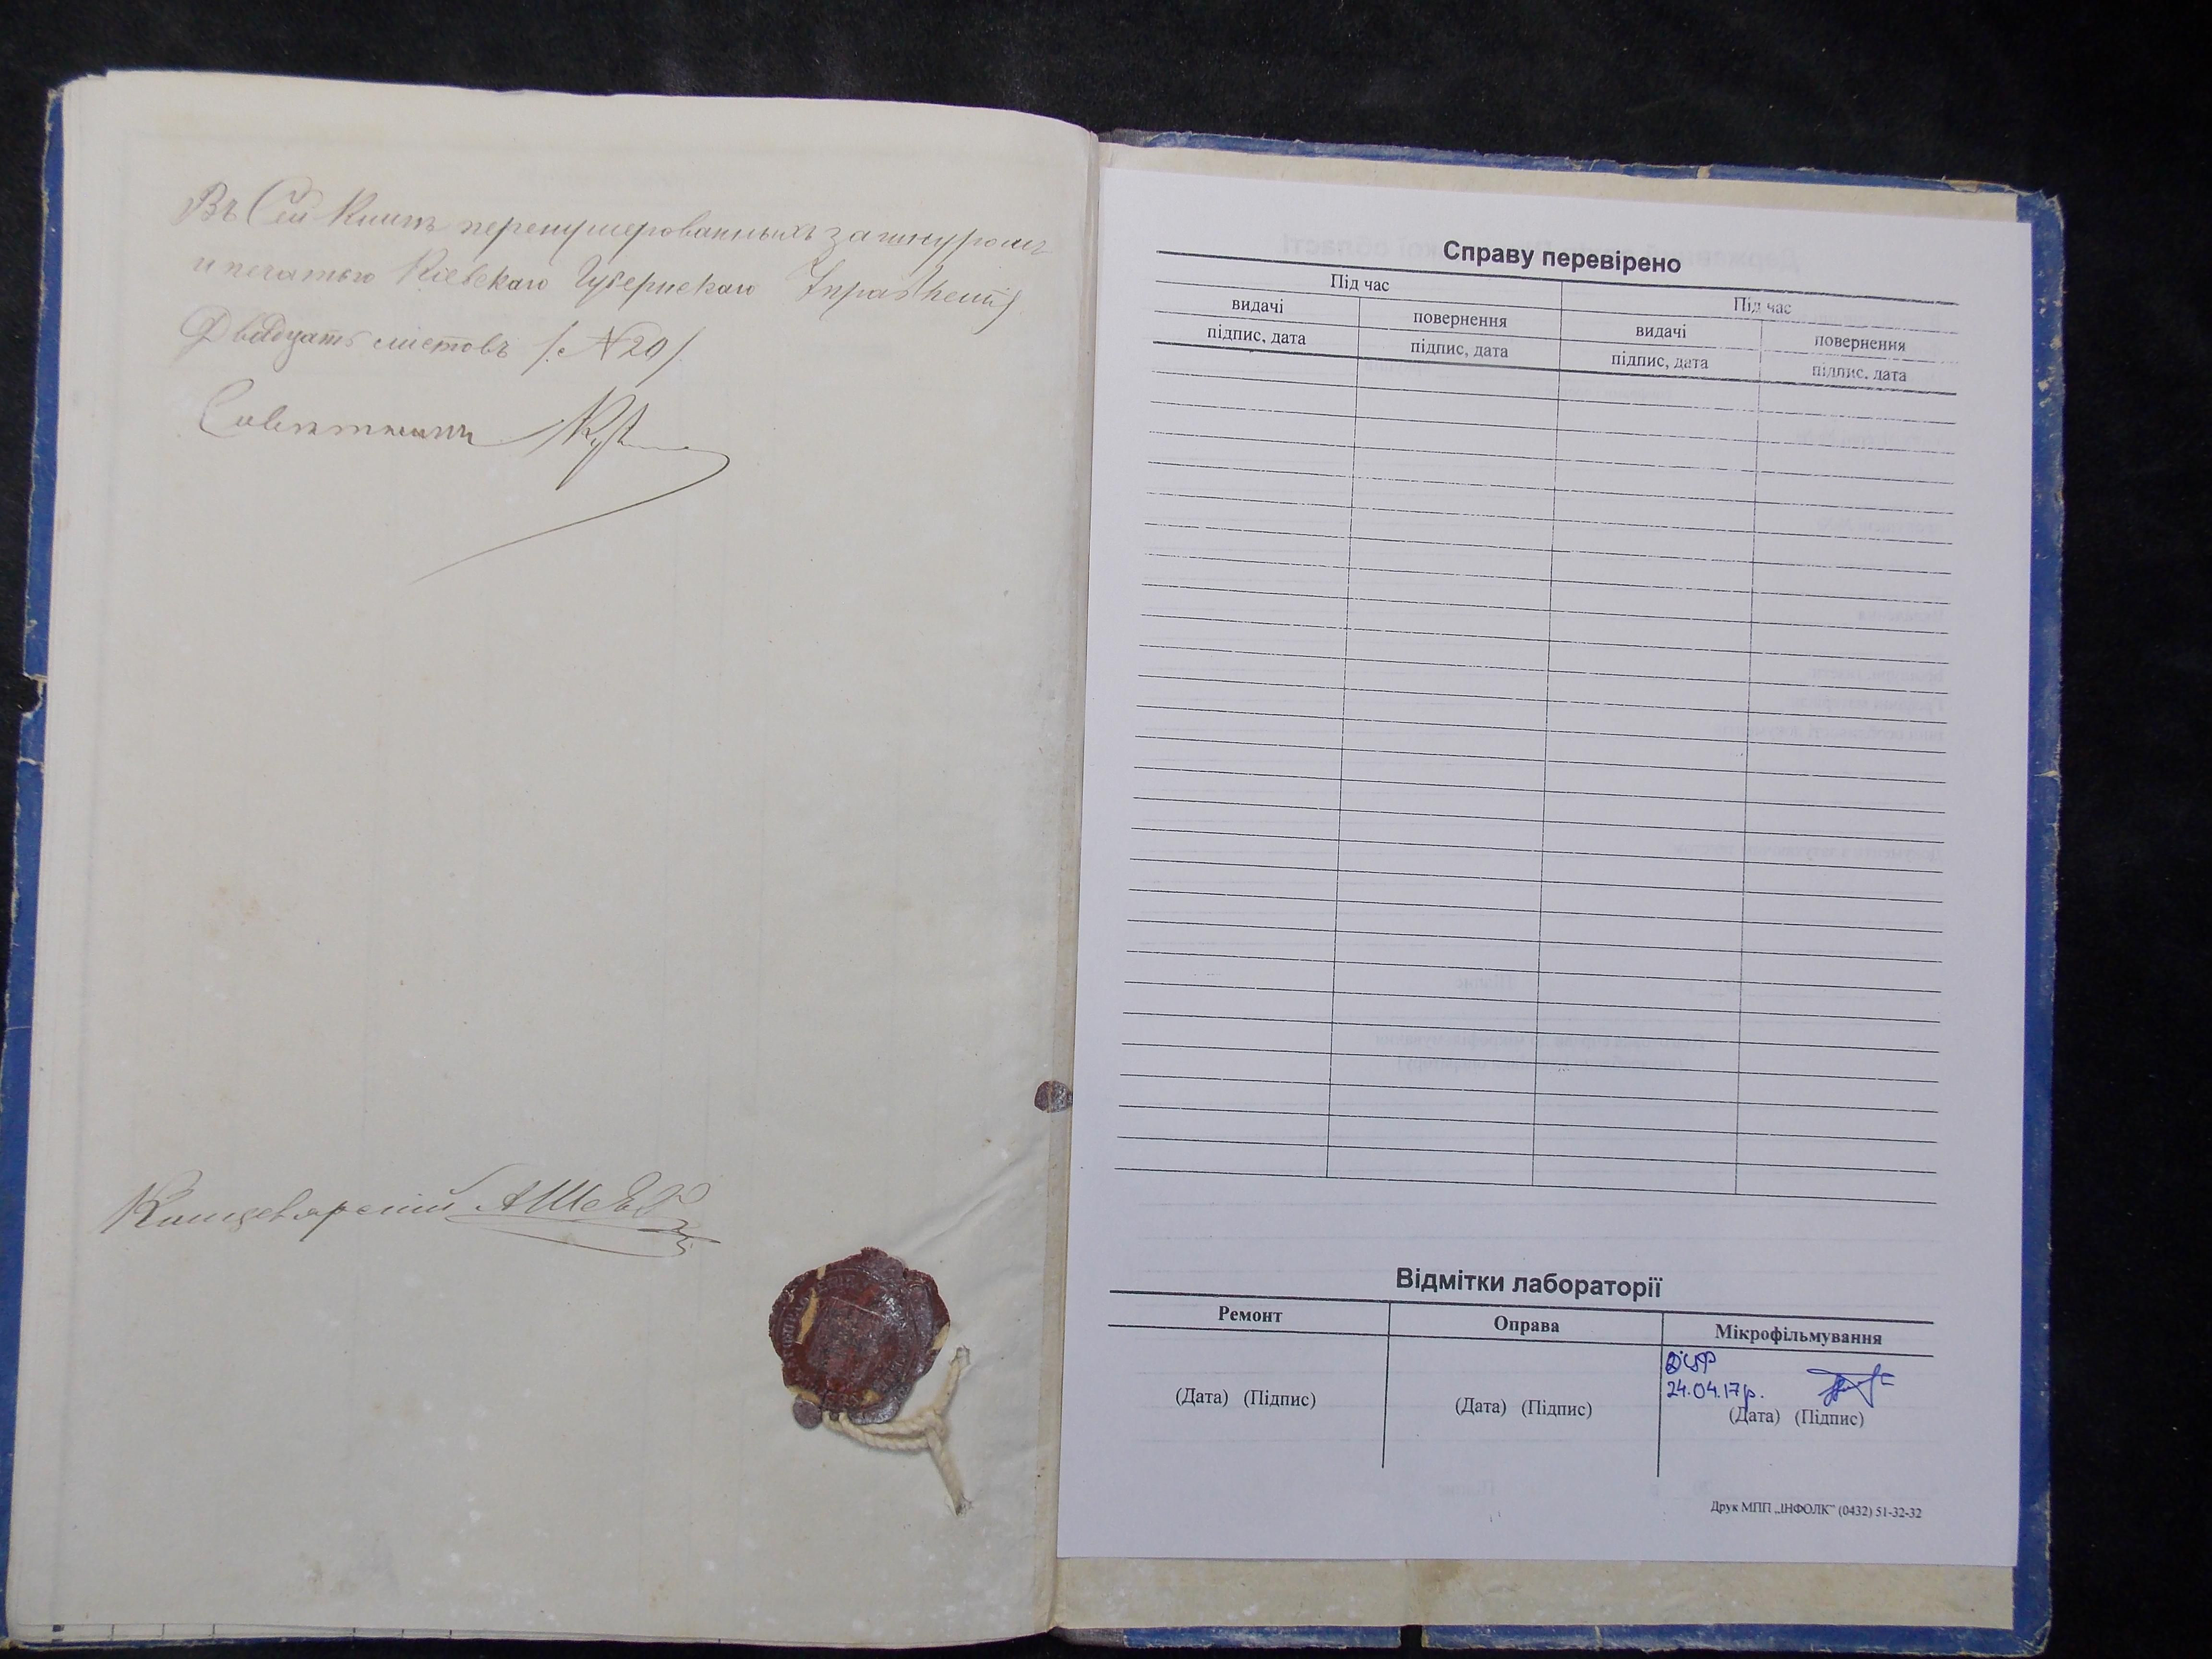 Въ Сей Книгѣ перенумерованныхъ за шнуромъ
и печатью Кіевскаго Губернскаго Управленія
Двадцать листовъ /: №20/.
Совѣтникъ
Канцелярскій
Справу перевірено
Під час Під час
видачі повернення видачі повернення
підпис, дата підпис, дата підпис, дата підпис, дата
Відмітки лабораторії
Ремонт Оправа Мікрофільмування
24.04.17р.
(Дата) (Підпис) (Дата) (Підпис) (Дата) (Підпис)
Друк МПП „ІНФОЛК” (0432) 51-32-32